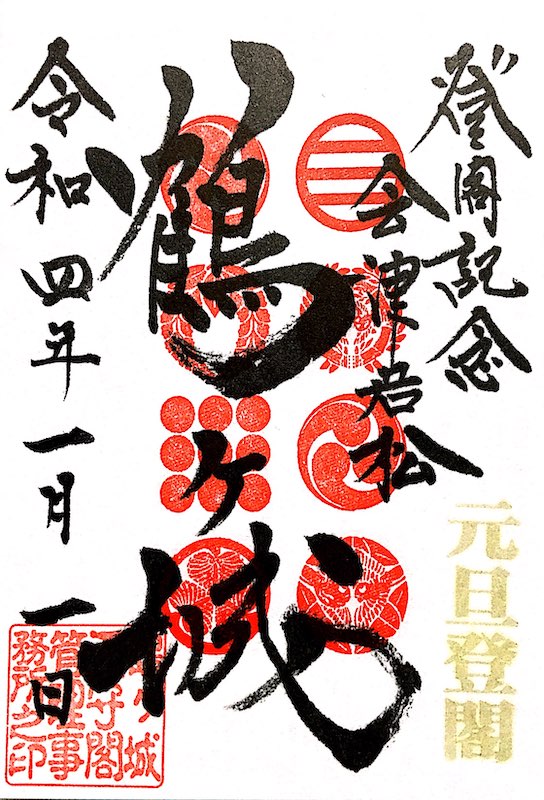 登閣記念
会津若松
鶴ヶ城
令和四年一月一日
元旦登閣
鶴ヶ城
天守閣
管理事
務所之印